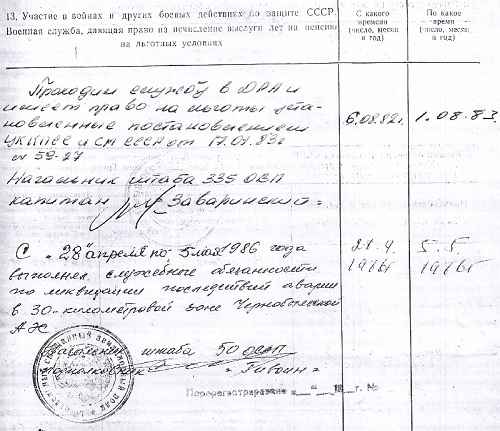 13. Участие в войнах и других боевых действиях по защите СССР.
Военная служба, дающая право на исчисление выслуги лет на пенсию
на льготных условиях
С какого
времени
(число, месяц
и год)
По какое
время
(число, месяц
и год)
Проходил службу в ДРА и
имеет право на льготы уста-
новленные постановлением
ЦК КПСС и СМ СССР от 17.01.83г
№ 59-27
6.08.82г.
1.08.83
Начальник штаба 335 ОВП
капитан Заваринский
С "28" апреля по 5 мая 1986 года
выполнял служебные обязанности
по ликвидации последствий аварии
в 30-километровой зоне Чернобыльской
АЭС
28.4.
1986г
5.5.
1986г
Начальник штаба 50 ОСАП
подполковник
Перерегистрировано " " 19 г. №